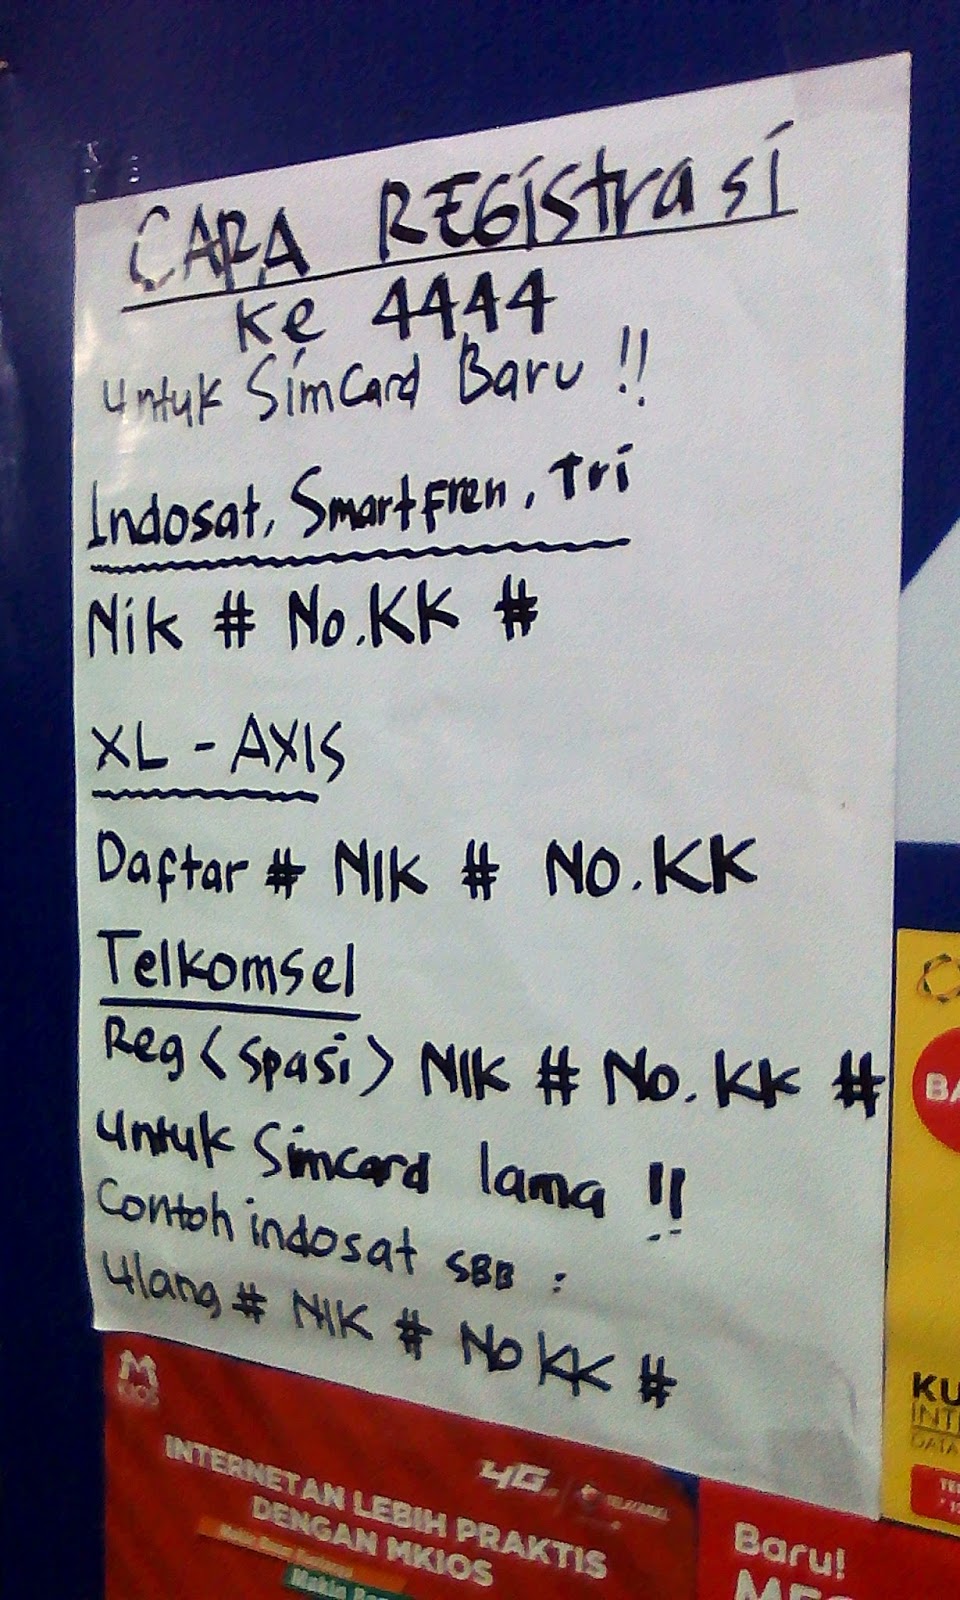 CARA REGistrasi
Ke 4444
untuk SimCard Baru !!
Indosat, Smartfren, Tri
Nik # No.KK #
XL - AXIS
Daftar # NIK # NO.KK
Telkomsel
Reg < Spasi > NIK # No. KK #
untuk Simcard lama !!
Contoh indosat SBB :
Ulang # NIK # No KK #
M
KIOS
4G
TELKOMSEL
INTERNETAN LEBIH PRAKTIS
DENGAN MKIOS
Baru!
BA
KU
INT
DATA